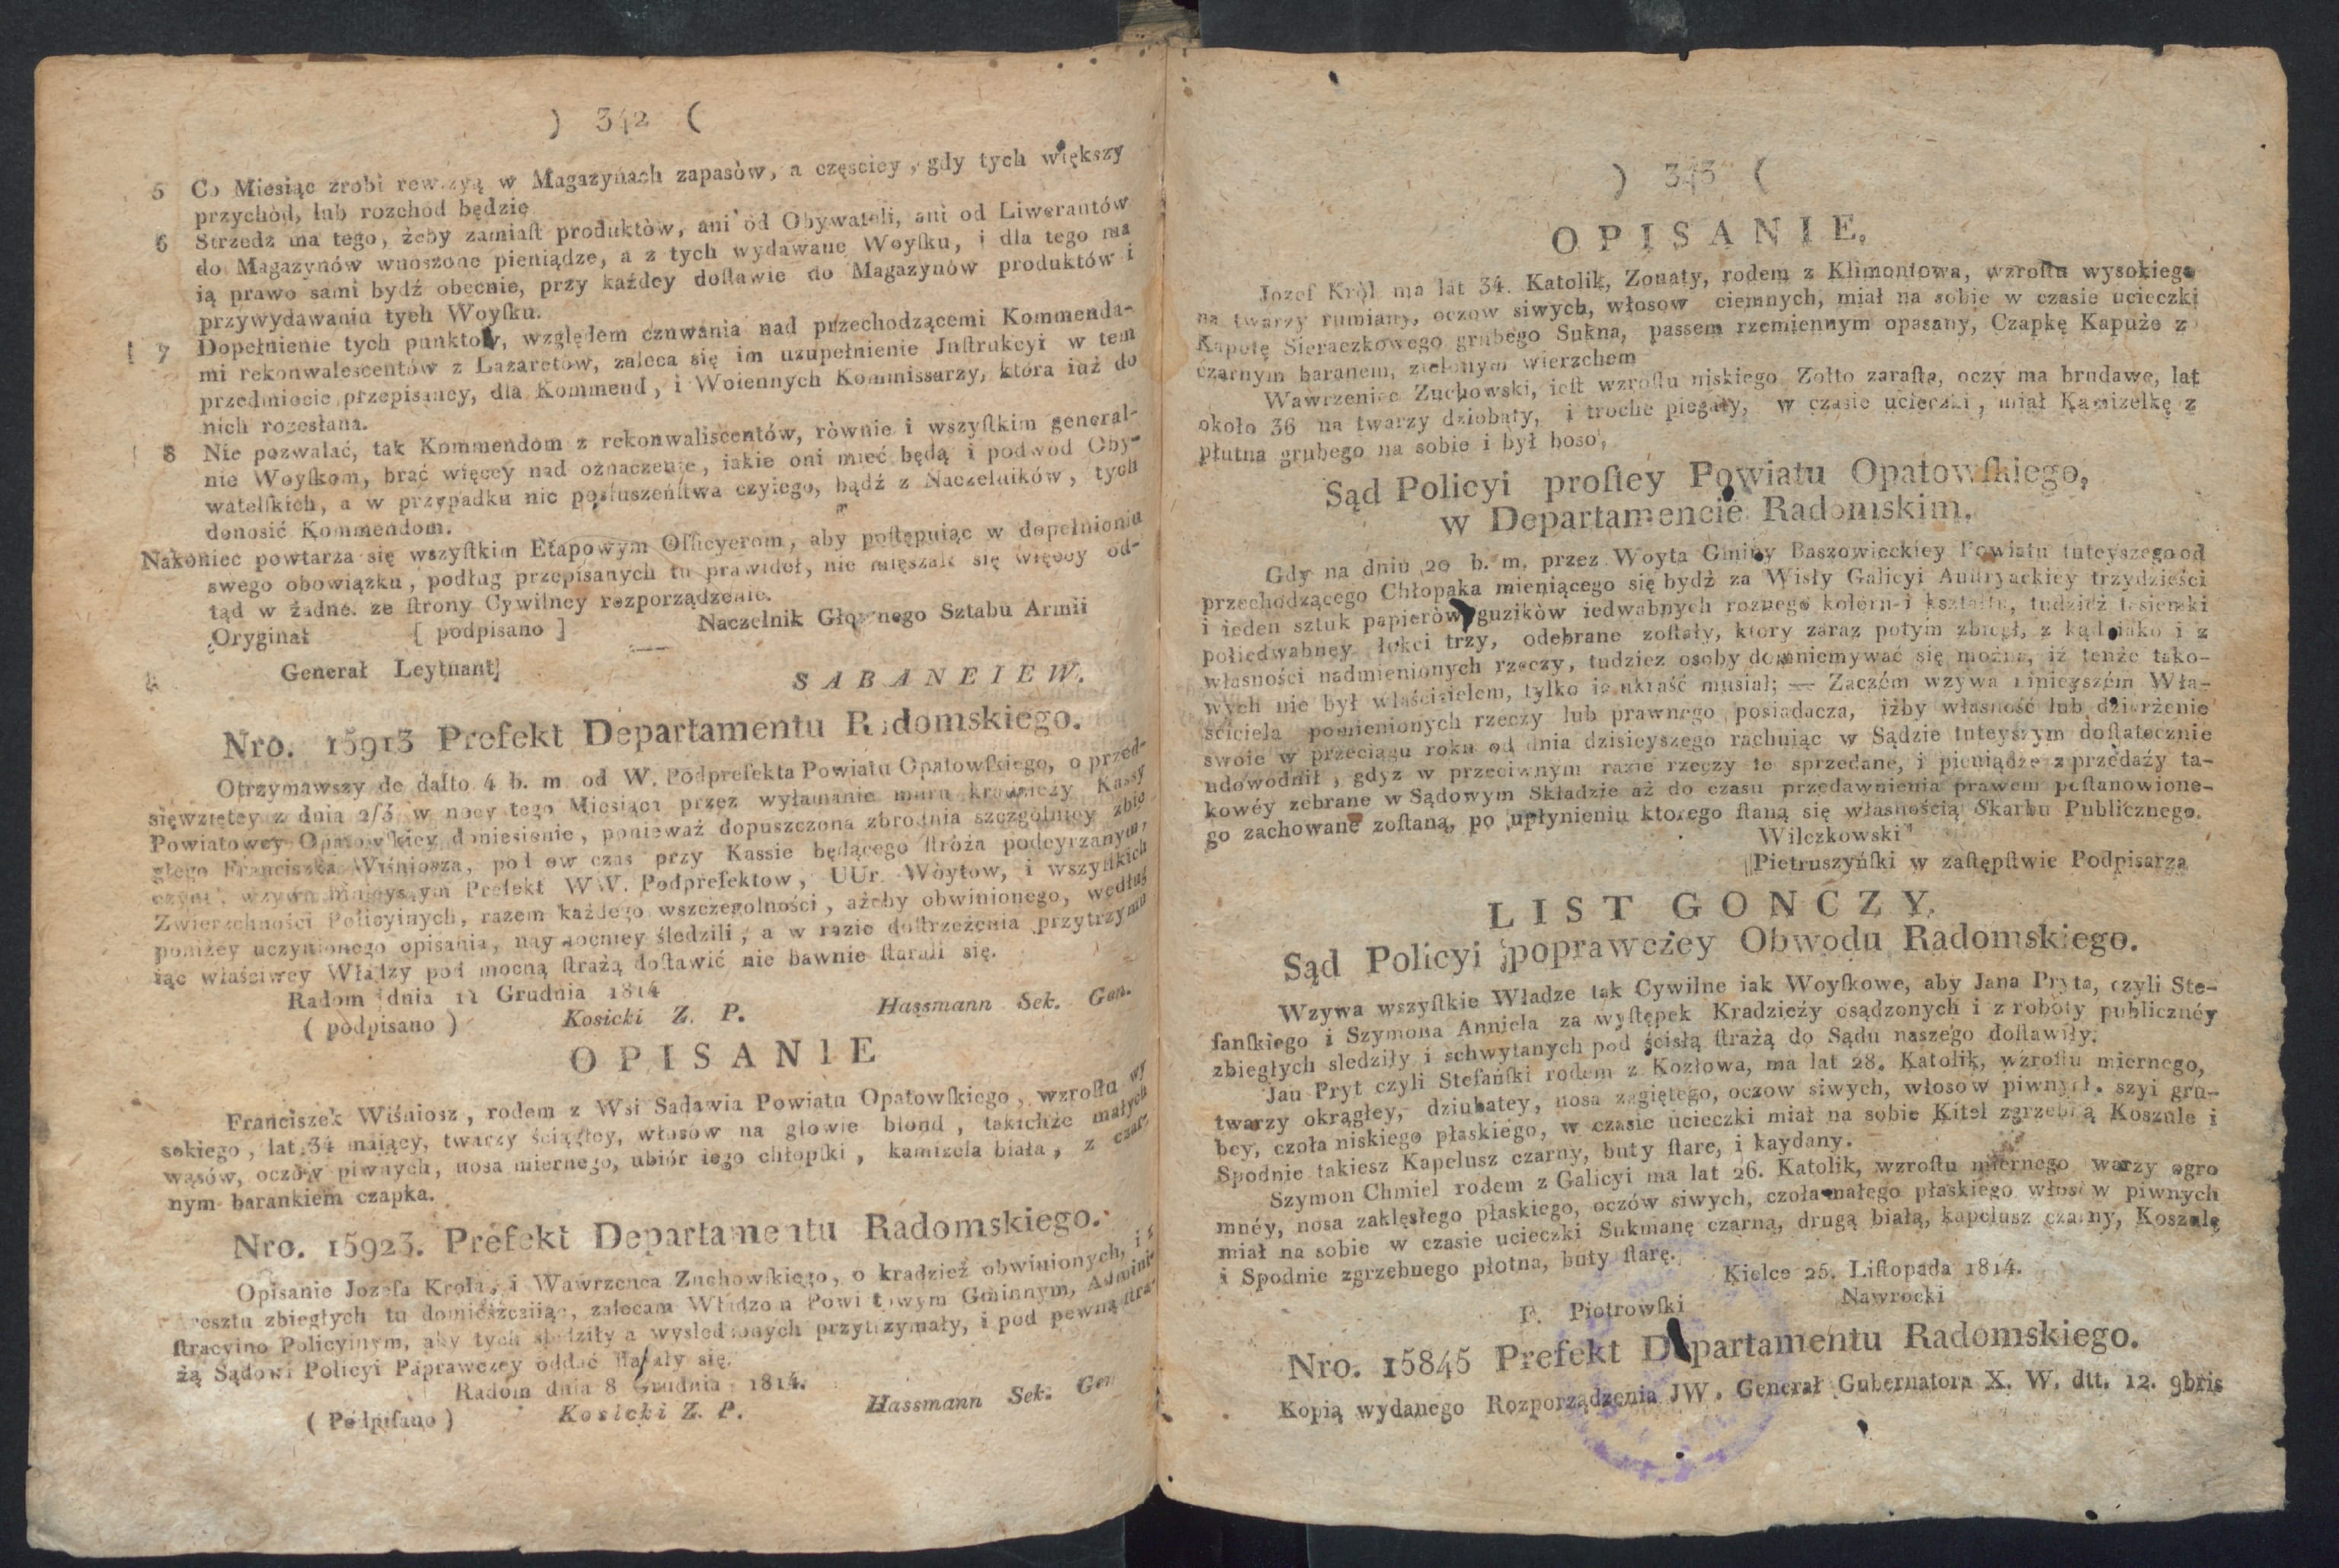 ) 342 (
5 Co Miesiąc zrobi rewizyą w Magazynach zapasòw, a częsciey, gdy tych większy
przychòd, lub rozchod będzie
6 Strzedz ma tego, żeby zamiaſt produktòw, ani od Obywateli, ani od Liwerantów
do Magazynów wnoszone pieniądze, a z tych wydawane Woyſku, i dla tego ma
ią prawo sami bydź obecnie, przy każdey doſtawie do Magazynów produktów i
przywydawaniu tych Woyſku.
7 Dopełnienie tych punktow, względem czuwania nad przechodzącemi Kommenda-
mi rekonwalescentów z Lazaretów, zaleca się im uzupełnienie Jnſtrukcyi w tem
przedmiocie przepisaney, dla Kommend, i Woiennych Kommissarzy, która iuż do
nich rozesłana.
8 Nie pozwalać, tak Kommendom z rekonwaliscentów, ròwnie i wszyſtkim general-
nie Woyſkom, brać więcey nad oźnaczenie, iakie oni mieć będą i podwod Oby-
watelſkich, a w przypadku nie posłuszeńſtwa czyiego, bądź z Naczelników, tych
donosić Kommendom.
Nakoniec powtarza się wszyſtkim Etapowym Officyerom, aby poſtępuiąc w dopełnieniu
swego obowiązku, podług przepisanych tu prawideł, nie mięszali się więcey od-
tąd w żadne ze ſtrony Cywilney rozporządzenie.
Oryginał [ podpisano ] Naczelnik Głownego Sztabu Armii
Generał Leytnant
SABANEIEW.
Nro. 15913 Prefekt Departamentu Radomskiego.
Otrzymawszy de datto 4 b. m od W. Podprefekta Powiatu Opatowſkiego, o przed-
sięwziętey z dnia 2/3 w nocy tego Miesiąca przez wyłamanie muru kradzieży Kassy
Powiatowey Opatowſkiey doniesienie, ponieważ dopuszczona zbrodnia szczgòlniey zbie
głego Franciszka Wiśniosza, pod ow czas przy Kassie będącego ſtróża podeyrzanym,
czyni, wzywa ninieyszym Prefekt WW. Podprefektow, UUr. Wòytow, i wszyſtkich
Zwierzchności Policyinych, razem każdego wszczegolności, ażeby obwinionego, według
poniżey uczynionego opisania, nay mocniey śledzili, a w razie doſtrzeżenia przytrzyma
iąc właściwey Władzy pod mocną ſtrażą doſtawić nie bawnie ſtarali się.
Radom dnia 11 Grudnia 1814
( podpisano ) Kosicki Z. P. Hassmann Sek. Gen.
OPISANIE
Franciszek Wiśniosz, rodem z Wsi Sadawia Powiatu Opatowſkiego, wzroſtu wy
sokiego, lat 34 maiący, twarzy ściągłey, włosów na głowie blond, takichże małych
wąsów, oczów piwnych, nosa miernego, ubiór iego chłopſki, kamizela biała, z czar-
nym barankiem czapka.
Nro. 15923. Prefekt Departamentu Radomskiego.
Opisanie Jozefa Krola, i Wawrzenca Zuchowſkiego, o kradzież obwinionych, i z
resztu zbiegłych tu domieszczaiąc, zalecam Władzom Powiatowym Gminnym, Admini-
ſtracyino Policyinym, aby tych śledziły a wysledzonych przytrzymały, i pod pewną ſtra-
żą Sądowi Policyi Paprawczey oddać ſtarały się.
Radom dnia 8 Grudnia 1814.
( Podpiſano ) Kosicki Z. P. Hassmann Sek. Gen
) 343 (
OPISANIE,
Jozef Kròl ma lat 34. Katolik, Zonaty, rodem z Klimontowa, wzroſtu wysokiego
na twarzy rumiany, oczow siwych, włosow ciemnych, miał na sobie w czasie ucieczki
Kapotę Sieraczkowego grubego Sukna, passem rzemiennym opasany, Czapkę Kapuże z
czarnym baranem, zielonym wierzchem
Wawrzeniec Zuchowski, ieſt wzroſtu niskiego Zołto zaraſta, oczy ma brudawe, lat
około 36 na twarzy dziobaty, i troche piegaty, w czasie ucieczki, miał Kamizelkę z
płutna grubego na sobie i był boso,
Sąd Policyi proſtey Powiatu Opatowſkiego,
w Departamencie Radomskim.
Gdy na dniu 20 b. m. przez Woyta Gminy Baszowieckiey Powiatu tuteyszego od
przechodzącego Chłopaka mieniącego się bydź za Wisły Galicyi Auſtryackiey trzydzieści
i ieden sztuk papieròw guzikòw iedwabnych roznego koloru i kształtu, tudzież tasiemki
połiedwabney łokci trzy, odebrane zoſtały, ktory zaraz potym zbiegł, z kąd iako i z
własności nadmienionych rzeczy, tudziez osoby domniemywać się można, iż tenże tako-
wych nie był właścicielem, tylko ie ukraść musiał; — Zaczém wzywa ninieyszém Wła-
ściciela pomienionych rzeczy lub prawnego posiadacza, iżby własność lub dzierżenie
swoie w przeciągu roku od dnia dzisieyszego rachuiąc w Sądzie tuteyszym doſtatecznie
udowodnił, gdyz w przeciwnym razie rzeczy te sprzedane, i pieniądze z przedaży ta-
kowéy zebrane w Sądowym Składzie aż do czasu przedawnienia prawem poſtanowione-
go zachowane zoſtaną, po upłynieniu ktorego ſtaną się własnością Skarbu Publicznego.
Wilczkowski
Pietruszyńſki w zaſtępſtwie Podpisarza
LIST GONCZY,
Sąd Policyi poprawczey Obwodu Radomskiego.
Wzywa wszyſtkie Władze tak Cywilne iak Woyſkowe, aby Jana Pryta, czyli Ste-
fanſkiego i Szymona Anniela za wyſtępek Kradzieży osądzonych i z roboty publicznéy
zbiegłych sledziły i schwytanych pod ścisłą ſtrażą do Sądu naszego doſtawiły.
Jan Pryt czyli Stefańſki rodem z Kozłowa, ma lat 28. Katolik, wzroſtu miernego,
twarzy okrągłey, dziubatey, nosa zagiętego, oczow siwych, włosow piwnych. szyi gru-
bey, czoła niskiego płaskiego, w czasie ucieczki miał na sobie Kitel zgrzebną Koszule i
Spodnie takiesz Kapelusz czarny, buty ſtare, i kaydany.
Szymon Chmiel rodem z Galicyi ma lat 26. Katolik, wzroſtu miernego warzy ogro
mnéy, nosa zaklęsłego płaskiego, oczów siwych, czoła małego płaskiego włosów piwnych
miał na sobie w czasie ucieczki Sukmanę czarną, drugą białą, kapelusz czarny, Koszulę
i Spodnie zgrzebnego płotna, buty ſtarę.
Kielce 25. Liſtopada 1814.
P. Piotrowſki Nawrocki
Nro. 15845 Prefekt Departamentu Radomskiego.
Kopią wydanego Rozporządzenia JW. Generał Gubernatora X. W. dtt. 12. 9bris